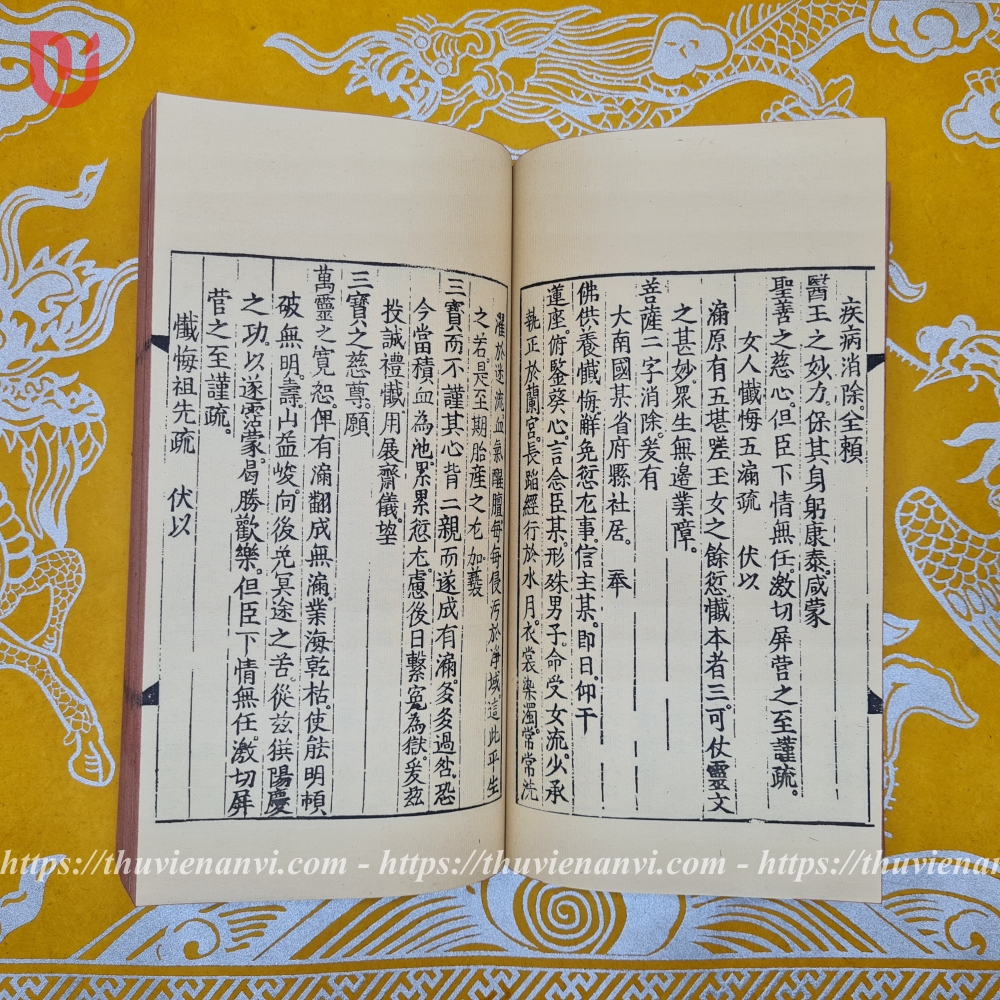 疾病消除。全頼
醫王之妙力。保其身躬康泰。咸蒙
聖善之慈心。但臣下情無任。激切屏營之至謹疏。
女人懺悔五漏疏 伏以
漏原有五甚嗟王女之餘愆懺本者三。可仗靈文
之甚妙眾生無邊業障。
菩薩二字消除。爰有
大南國某省府縣社居。 奉
佛供養懺悔解免愆尤事。信主某。即日。仰干
蓮座。俯鑒葵心。言念臣某。形殊男子。命受女流。少承
執正於蘭宮。長蹈經行於水月。衣裳染濁。常常洗
濯於逆流血氣腥膻每每侵污於净域這此平生
之若是至期胎產之尤加褻
三寶而不謹其心背二親而遂成有漏。多多過咎。恐
今當積血為池。累累愆尤。慮後日繫冤為獄。爰茲
投誠禮懺用展齋儀。望
三寶之慈尊。願
萬靈之寬恕。俾有漏翻成無漏。業海乾枯。使能明頓
破無明。壽山益峻。向後免冥途之苦。從兹
陽慶之功。以遂霑蒙。曷勝歡樂。但臣下情無任。激切屏
營之至謹疏。
懺悔祖先疏 伏以
https://thuvienanvi.com - https://thuvienanvi.com - https://thuvienanvi.com